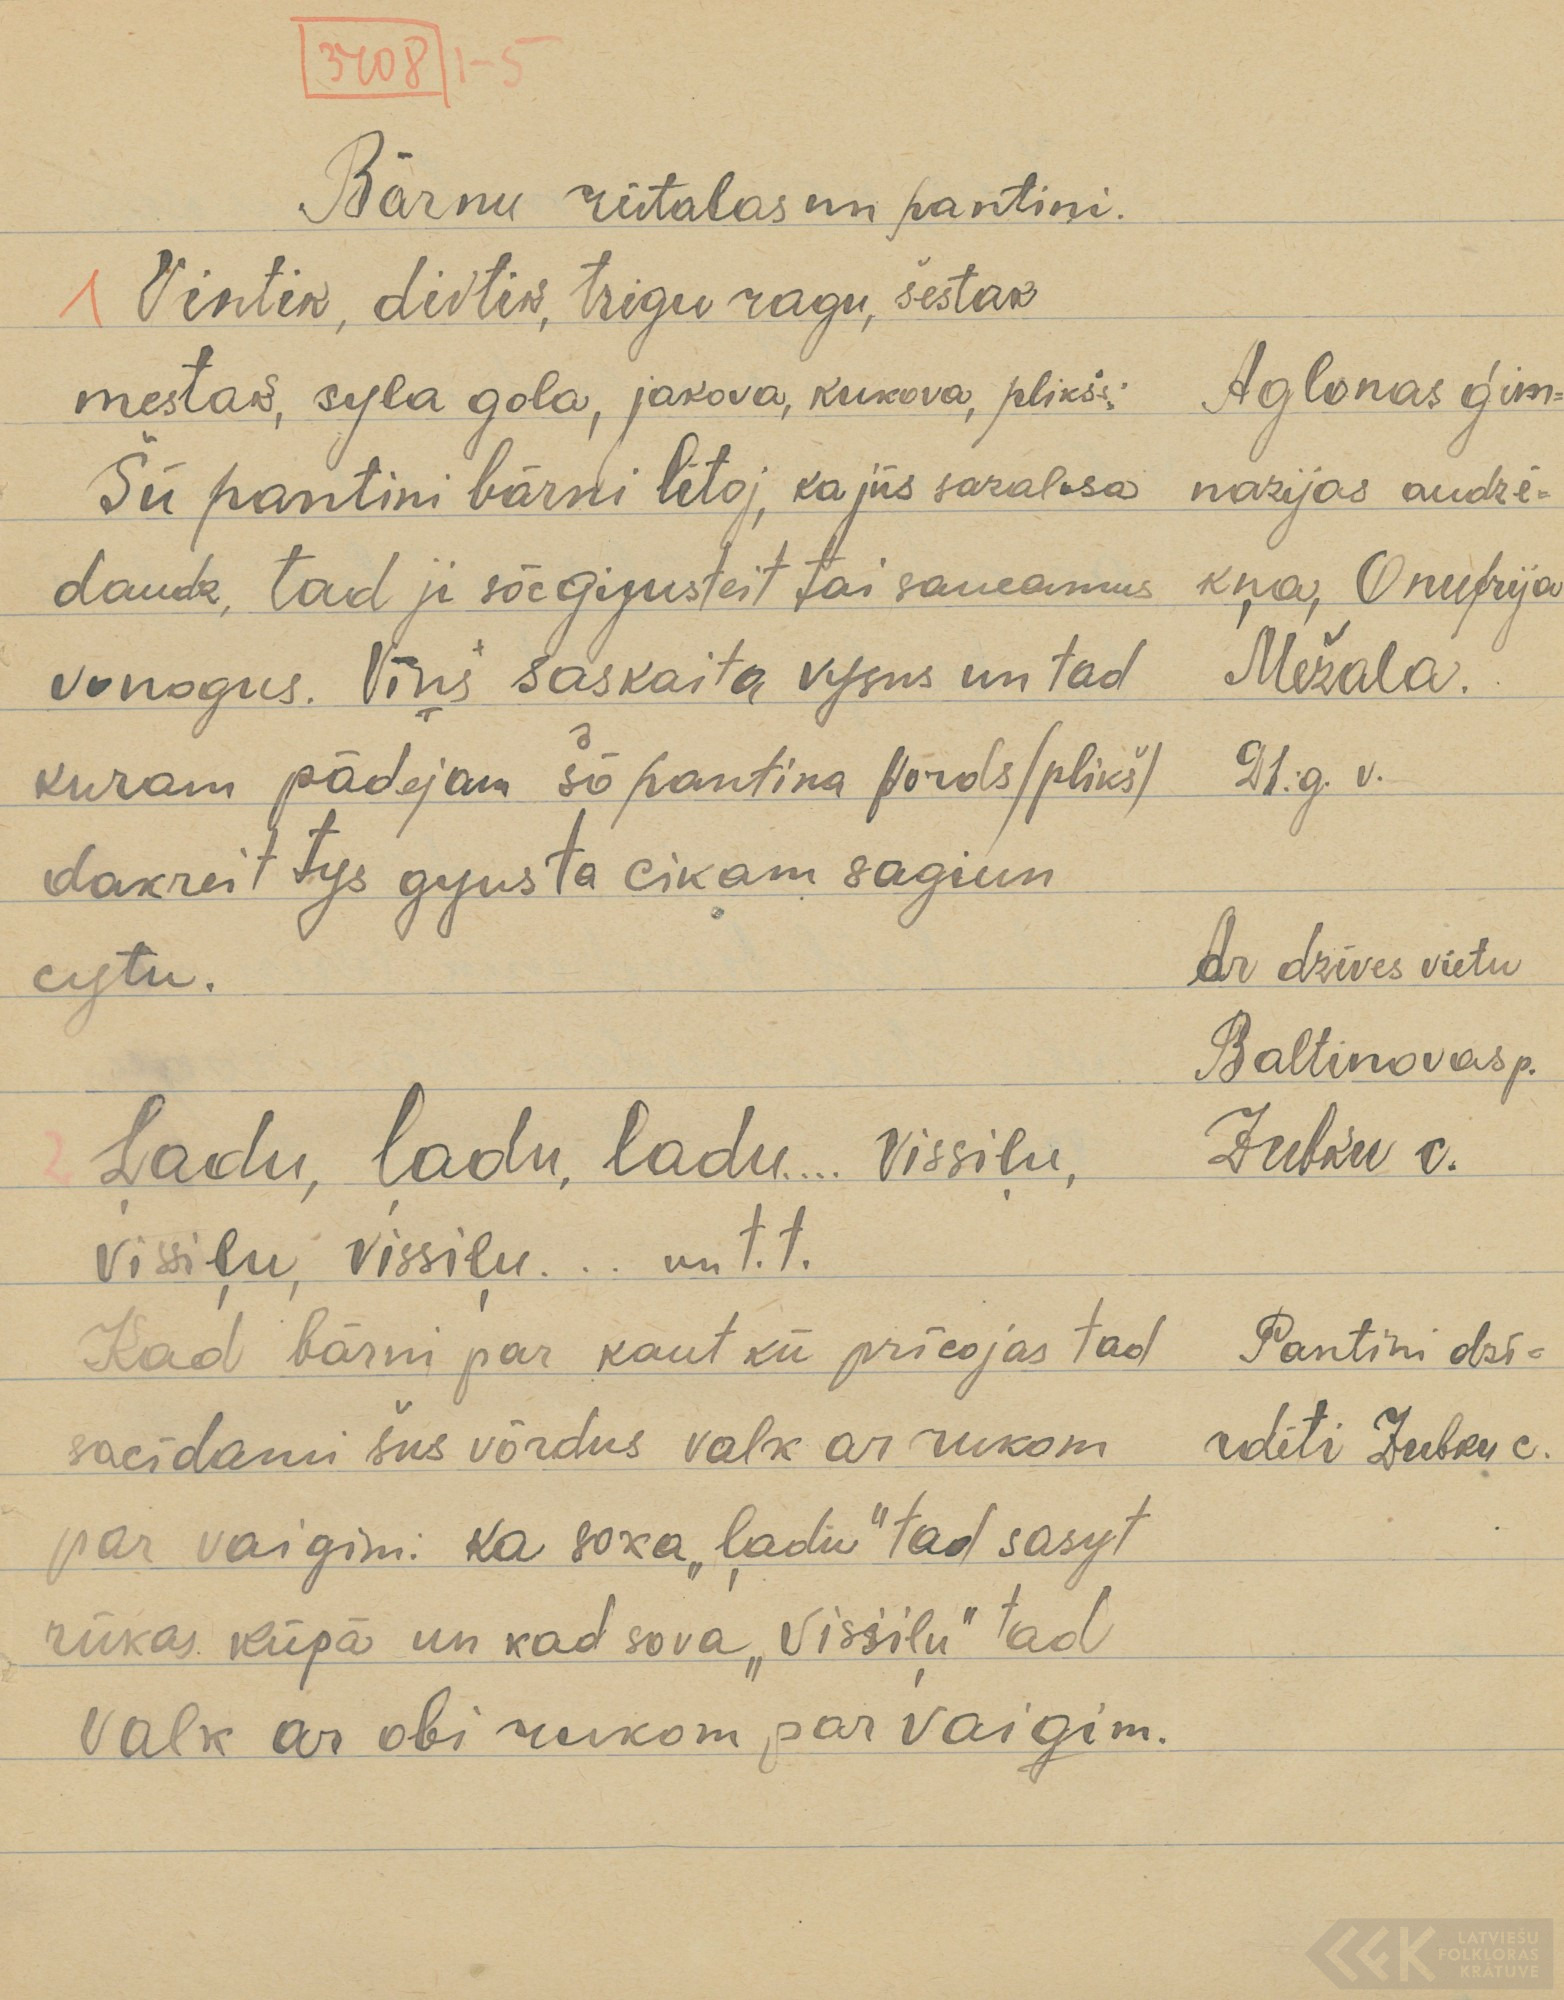 3708 1-5
Bārnu rūtaļas un pantini.
1 Vintik, divtik, trigu ragu, šestak
mestak, syla gola, jakova, kukova, plikš:
Šū pantini bārni lītoj, ka jūs sazalosa
daudz, tad ji sōc giyusteit tai saucamus
vonogus. Viņš saskaita vysus un tad
kuram pādejam šō pantina vōrds /plikš/
dakreit tys gyusta cikam sagiun
cytu.
2 Ļadu, ļadu, ladu.... vissiļu,
vissiļu, vissiļu. .. un t.t.
Kad bārni par kaut kū prīcojas tad
sacīdami šus vōrdus valk ar rukom
par vaigim: ka soka „ļadu" tad sasyt
rūkas kūpā un kad sova „vissiļu" tad
valk ar obi rukom par vaigim.
Aglonas ģim=
nazijas audzē=
kņa, Onufrija
Mežala.
21. g. v.
Ar dzīves vietu
Baltinovas p.
Zubku c.
Pantini dzi=
rdēti Zubku c.
LATVIEŠU
FOLKLORAS
KRĀTUVE